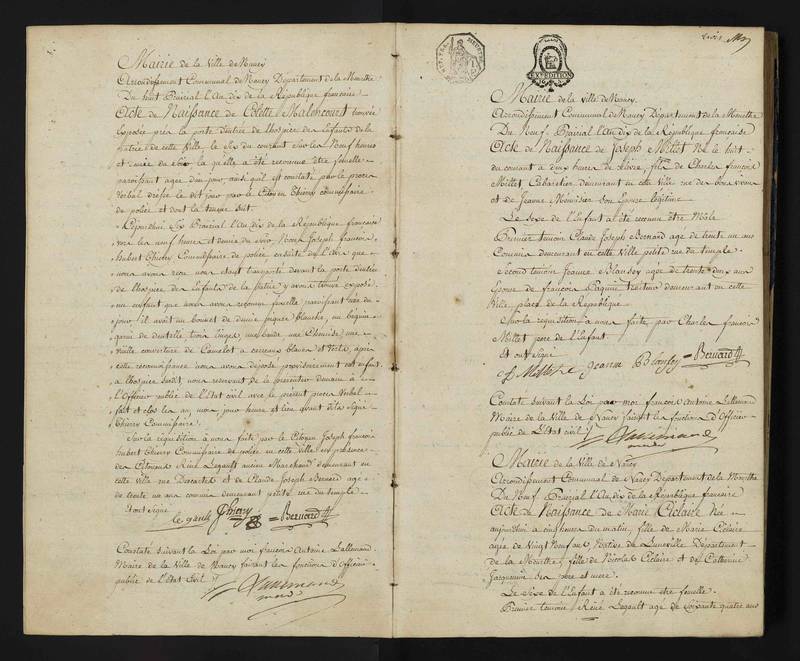 Mairie de la Ville de Nancy
Arrondissement Communal de Nancy Département de la Meurthe
Du huit Prairial l'An dix de la République française
Acte de Naissance de Colette Malencourt trouvée
Exposée près la porte d'entrée de l'hospice des Enfants de la
patrie de cette Ville, le Six du courant sur les Neuf heures
et demie du soir laquelle a été reconnue être femelle
paroissant agée d'un jour ainsi qu'il est constaté par le procès
Verbal dressé le dit jour par le Citoyen Thiery commissaire
de police et dont la teneur suit
Cejourdhui Six Prairial l'An dix de la République française
sur les neuf heures et demie du soir, Nous Joseph françois
hubert Thiery Commissaire de police ensuite de l'avis que
nous avons reçu nous étant transporté devant la porte d'entrée
de l'hospice des Enfants de la patrie y avons trouvé exposé
un enfant que nous avons reconnu femelle, paroissant née du
jour il avoit un bonnet de piquée blanche, un béguin
garni de dentelle trois linges, une bande une Chemise, une
vieille couverture de Camelot à carreaux blancs et Verts, après
cette reconnoissance nous avons déposé provisoirement cet enfant
à l'hospice susdit nous reservant de le presenter demain à
l'Officier public de l'état civil avec le présent procès Verbal
fait et clos les an, mois, jour heure et lieu avant dits signé
Thiery Commissaire.
Sur la réquisition à nous faite par le Citoyen Joseph françois
hubert Thiery Commissaire de police en cette Ville en présence
des Citoyens René Legault ancien Marchand demeurant en
cette Ville rue Descartes et de Claude Joseph Bernard agé
de trente un ans commis demeurant petite rue du temple
Et ont Signé
le gault Thiery = Bernard
Constaté suivant la Loi par moi françois Antoine Lallemand
Maire de la Ville de Nancy faisant les fonctions d'Officier
public de l'Etat Civil
Lallemand
maire
EXPEDITION
Mairie de la Ville de Nancy
Arrondissement Communal de Nancy Département de la Meurthe
Du Neuf Prairial l'An dix de la République francaise
Acte de Naissance de Joseph Millot Né le huit
du courant à deux heures de relevé, fils de Charles françois
Millot Cabaretier demeurant en cette Ville rue
et de Jeanne Meunisier son Epouse légitime
Le sexe de l'Enfant a été reconnu être Mâle
Premier temoin Claude Joseph Bernard agé de trente un ans
Commis demeurant en cette Ville petite rue du temple.
Second temoin Jeanne agée de trente ans
Epouse de françois Traiteur demeurant en cette
Ville place de la République
Sur la réquisition à nous faite par Charles françois
Millot pere de l'Enfant
Et ont signé
= Bernard
Constaté suivant la Loi par moi françois Antoine Lallemand
Maire de la Ville de Nancy faisant les fonctions d'Officier
public de l'Etat civil
Lallemand
maire
Mairie de la Ville de Nancy
Arrondissement Communal de Nancy Département de la Meurthe
Du Neuf Prairial l'An dix de la République francaise
Acte de Naissance de Marie Eclaire Née
aujourdhui à cinq heures du matin, fille de Marie Eclaire
agée de Vingt Neuf ans, Native de Luneville Département
de la Meurthe, fille de Nicolas Eclaire et de Catherine
Jacquemin ses pere et mere.
Le Sexe de l'Enfant a été reconnu être femelle.
Premier temoin René Legault agé de Soixante quatre ans